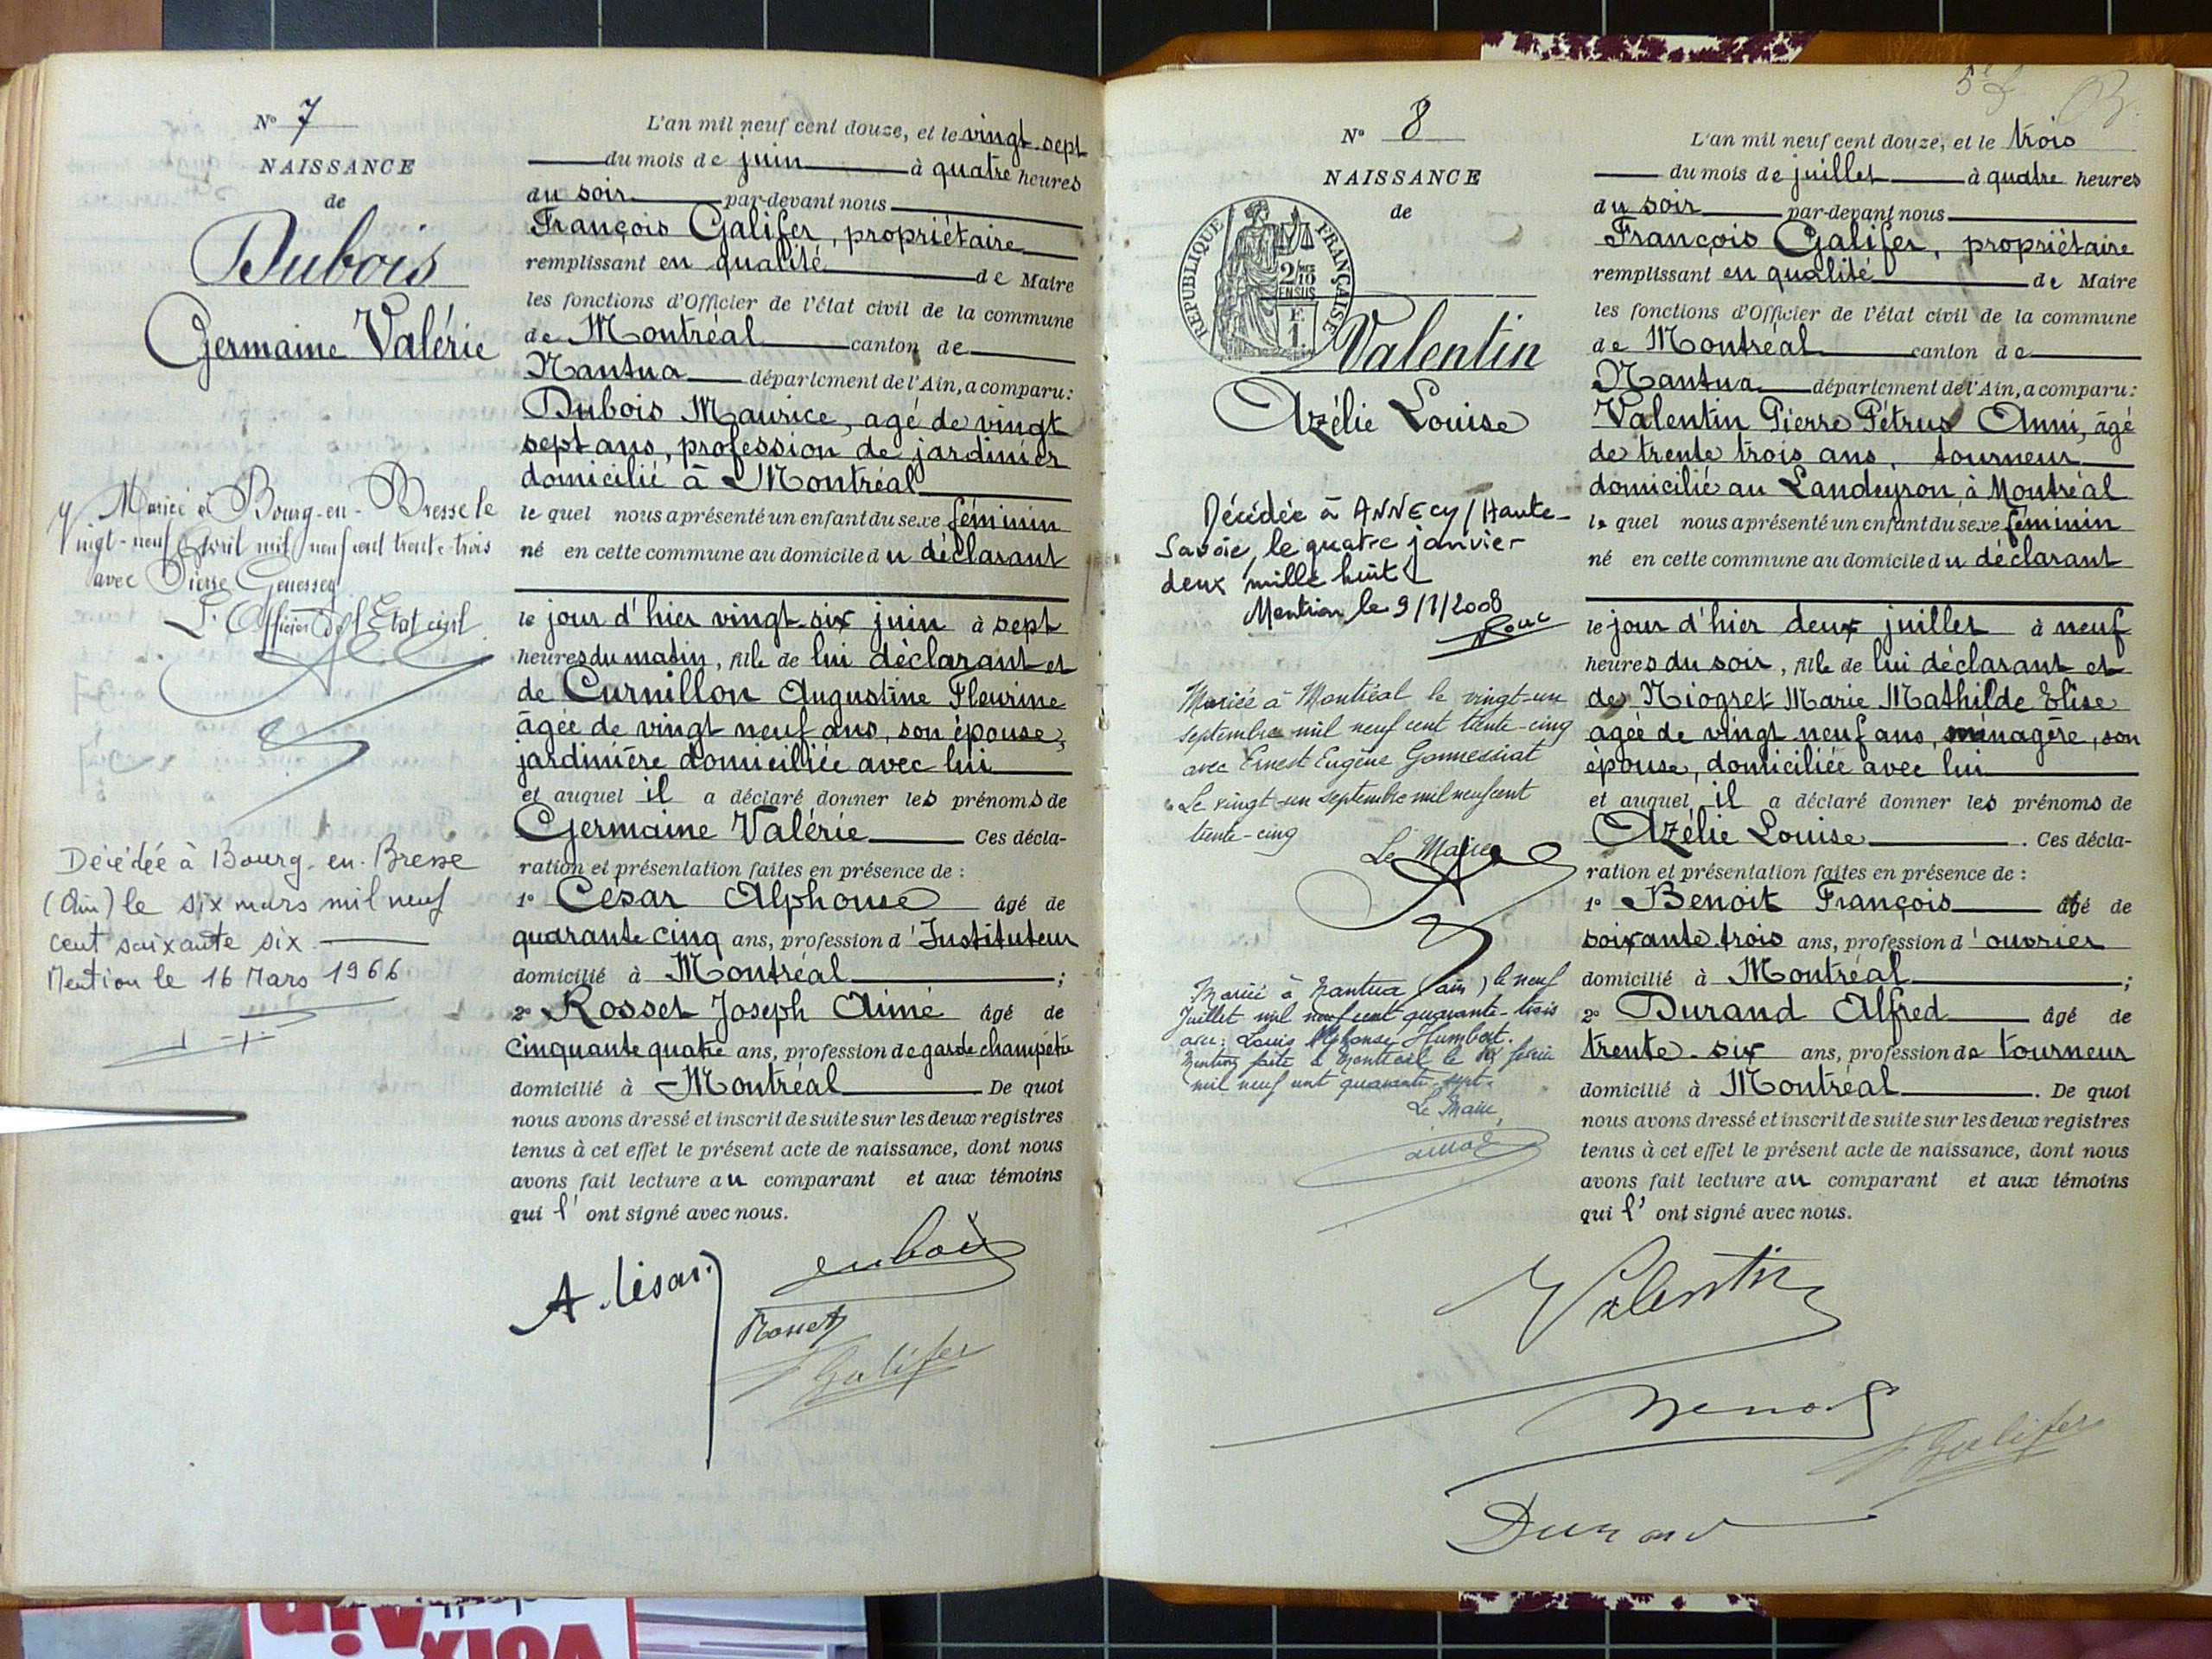 N° 7
NAISSANCE
de
Dubois
Germaine Valérie
Mariée à Bourg-en-Bresse le
vingt-neuf Avril mil neuf cent trente-trois
avec Pierre
L'Officier de l'Etat civil
Décédée à Bourg-en-Bresse
(Ain) le six mars mil neuf
cent soixante six
Mention le 16 Mars 1966
L'an mil neuf cent douze, et le vingt-sept
du mois de juin à quatre heures
du soir par-devant nous
François Galifer, propriétaire
remplissant en qualité de Maire
les fonctions d'Officier de l'état civil de la commune
de Montréal canton de
Nantua département de l'Ain, a comparu :
Dubois Maurice, agé de vingt
sept ans, profession de jardinier
domicilié à Montréal
le quel nous a présenté un enfant du sexe féminin
né en cette commune au domicile du déclarant
le jour d'hier vingt-six juin à sept
heures du matin, fille de lui déclarant et
de Curnillon Augustine Fleurine
âgée de vingt neuf ans, son épouse,
jardinière domiciliée avec lui
et auquel il a déclaré donner les prénoms de
Germaine Valérie Ces décla-
ration et présentation faites en présence de :
1° César Alphonse âgé de
quarante cinq ans, profession d'Instituteur
domicilié à Montréal ;
2° Rosset Joseph Aimé âgé de
cinquante quatre ans, profession de garde champêtre
domicilié à Montréal De quoi
nous avons dressé et inscrit de suite sur les deux registres
tenus à cet effet le présent acte de naissance, dont nous
avons fait lecture au comparant et aux témoins
qui l' ont signé avec nous.
A. César
Dubois
Rosset
Galifer
N° 8
NAISSANCE
de
RÉPUBLIQUE FRANÇAISE
2/10
EN SUS
F.
1.
Valentin
Azélie Louise
Décédée à ANNECY / Haute-
Savoie, le quatre janvier
deux mille huit
Mention le 9/1/2008
Mariée à Montréal le vingt-un
septembre mil neuf cent trente-cinq
avec Ernest Eugène Gonnessiat
Le vingt-un septembre mil neuf cent
trente-cinq
Le Maire
Mariée à Nantua (Ain) le neuf
Juillet mil neuf cent quarante-trois
avec Louis Alphonse Humbert.
Mention faite à Montréal le
mil neuf cent quarante-sept.
Le Maire,
L'an mil neuf cent douze, et le trois
du mois de juillet à quatre heures
du soir par-devant nous
François Galifer, propriétaire
remplissant en qualité de Maire
les fonctions d'Officier de l'état civil de la commune
de Montréal canton de
Nantua département de l'Ain, a comparu :
Valentin Pierre Pétrus Anni, âgé
de trente trois ans, tourneur
domicilié au Landeyron à Montréal
le quel nous a présenté un enfant du sexe féminin
né en cette commune au domicile du déclarant
le jour d'hier deux juillet à neuf
heures du soir, fille de lui déclarant et
de Niogret Marie Mathilde Elise
âgée de vingt neuf ans, ménagère, son
épouse, domiciliée avec lui
et auquel il a déclaré donner les prénoms de
Azélie Louise . Ces décla-
ration et présentation faites en présence de :
1° Benoit François âgé de
soixante trois ans, profession d'ouvrier
domicilié à Montréal ;
2° Durand Alfred âgé de
trente-six ans, profession de tourneur
domicilié à Montréal . De quoi
nous avons dressé et inscrit de suite sur les deux registres
tenus à cet effet le présent acte de naissance, dont nous
avons fait lecture au comparant et aux témoins
qui l' ont signé avec nous.
Valentin
Benoit
Galifer
Durand
VOIX